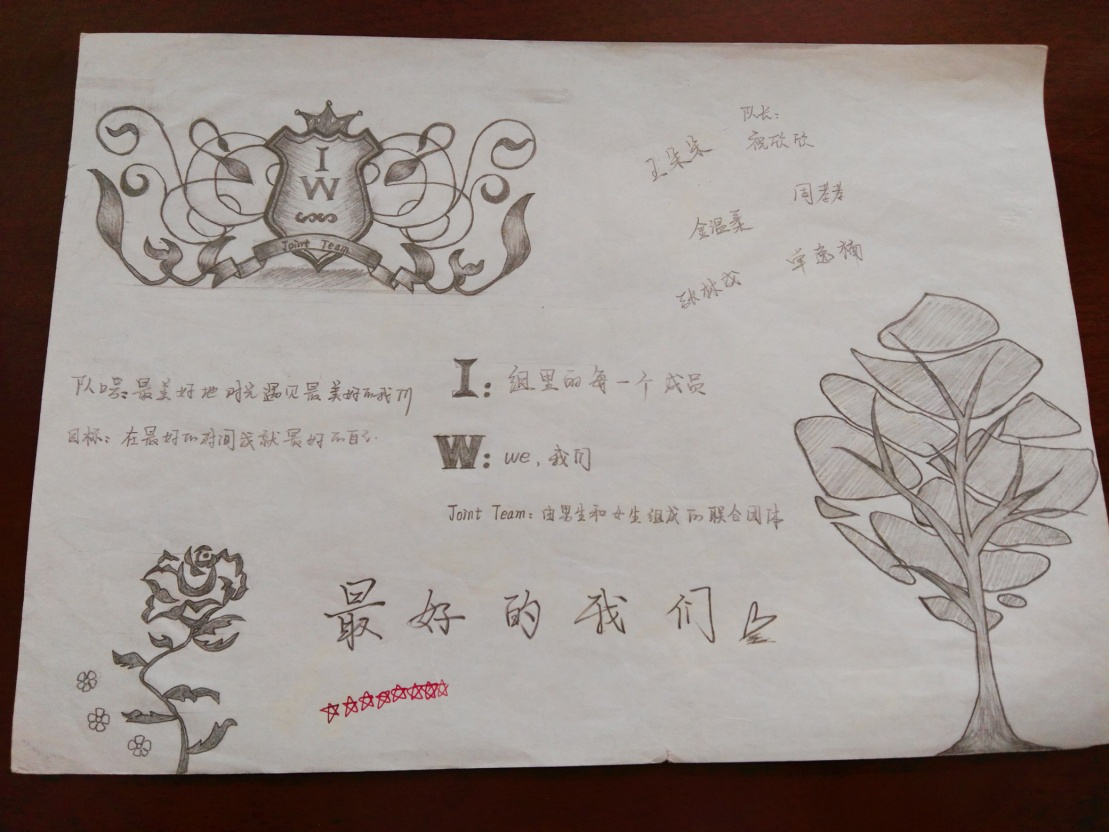 I
W
Joint Team
队长:
祝欣欣
王朵朵
金温柔
队口号:最美好地时光遇见最美好的我们
目标:在最好的时间成就最好的自己.
I:组里的每一个成员
W:we,我们
Joint Team:由男生和女生组成的联合团体
最好的我们